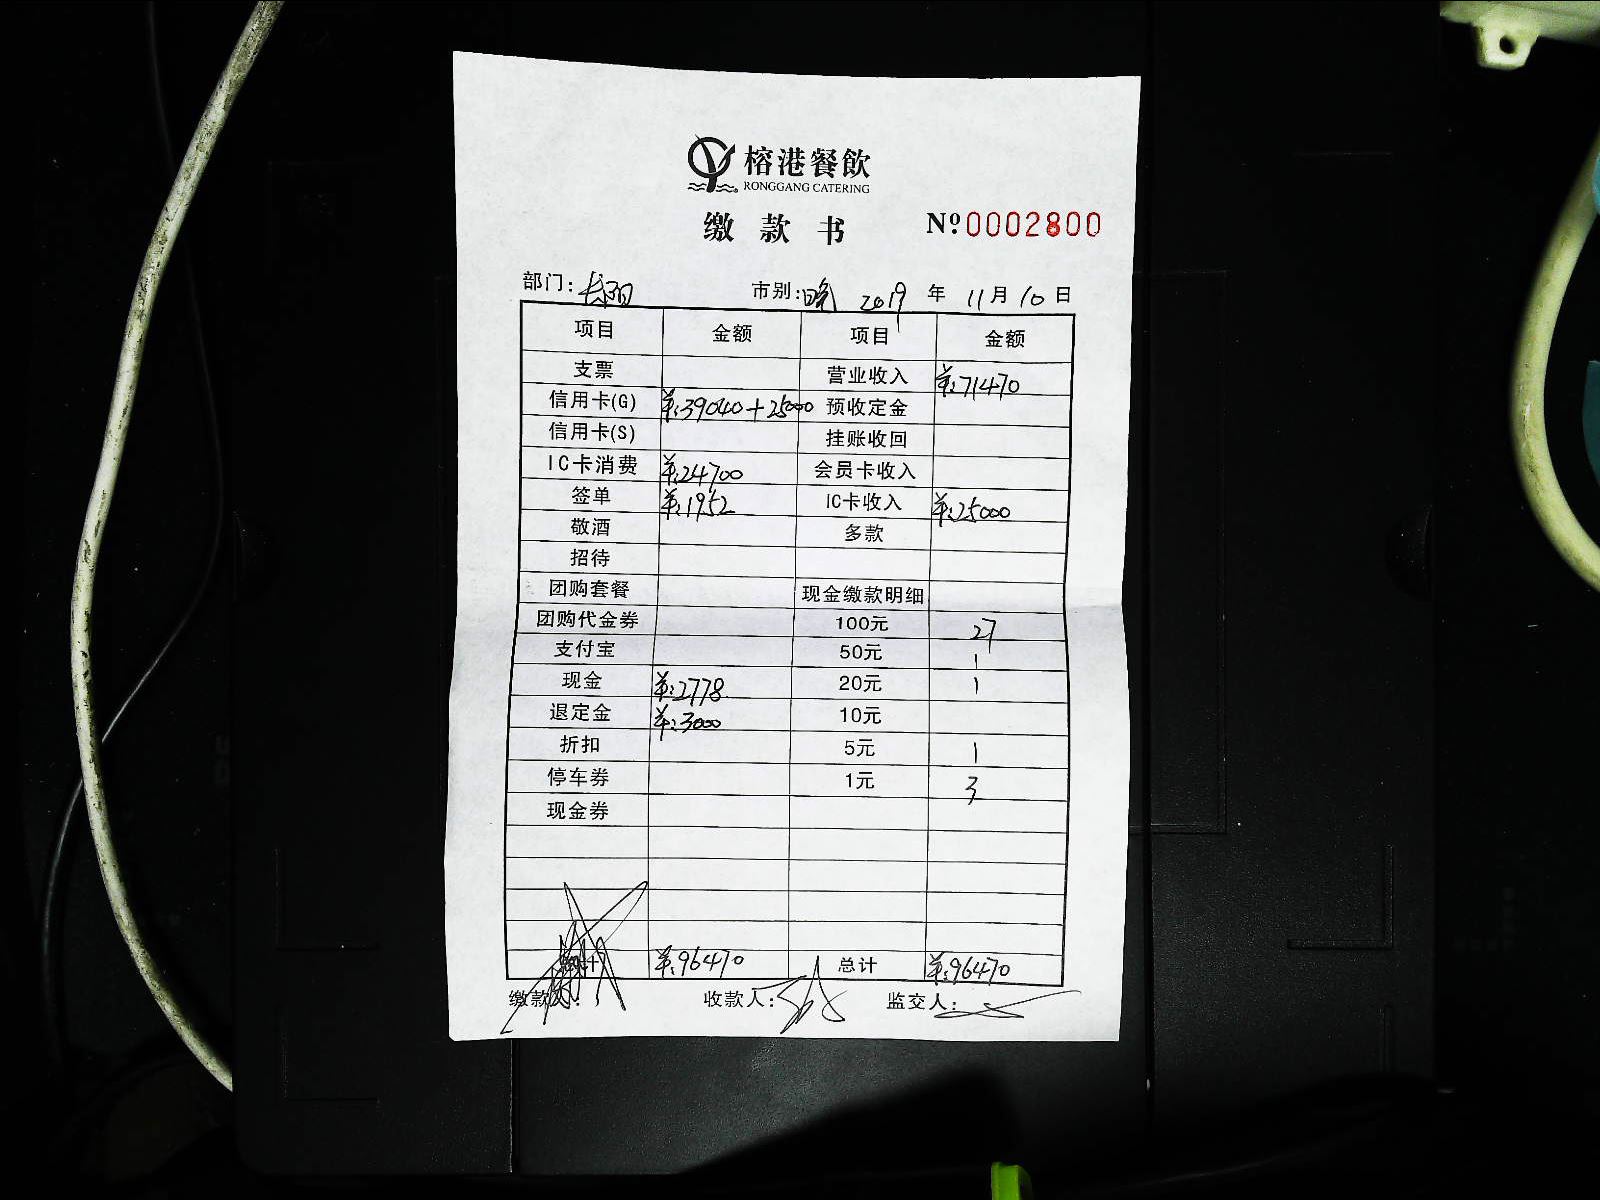 榕港餐飲
RONGGANG CATERING
缴款书 Nº0002800
部门: 市别:晚 2019年11月10日
项目 金额 项目 金额
支票 营业收入 ¥:71470
信用卡(G) ¥:39040+25000 预收定金
信用卡(S) 挂账收回
IC卡消费 ¥:24700 会员卡收入
签单 ¥:1952 IC卡收入 ¥:25000
敬酒 多款
招待
团购套餐 现金缴款明细
团购代金券 100元 27
支付宝 50元 1
现金 ¥:2778 20元 1
退定金 ¥:3000 10元
折扣 5元 1
停车券 1元 3
现金券
¥:96470 总计 ¥:96470
缴款 : 收款人: 监交人: